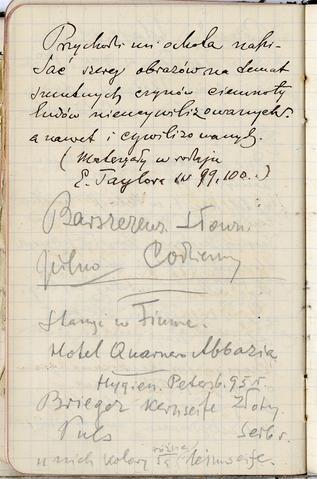 Przychodzi mi ochota napi-
sać szereg obrazów na temat
smutnych czynów ciemnoty
ludów nieucywilizowanych
a nawet i cywilizowanych.
(Materjały w rodzaju
E. Taylora str 99, 100..)
Barszczewa Słowa
pilno Codzienny
Stancji w Fiume.
Hotel Quarnero Abbazia
Hygien. Petersb. 95 r.
Brieger Kernseife Złoty
Puls Serb r.
u nich kolory różne są leimseife.